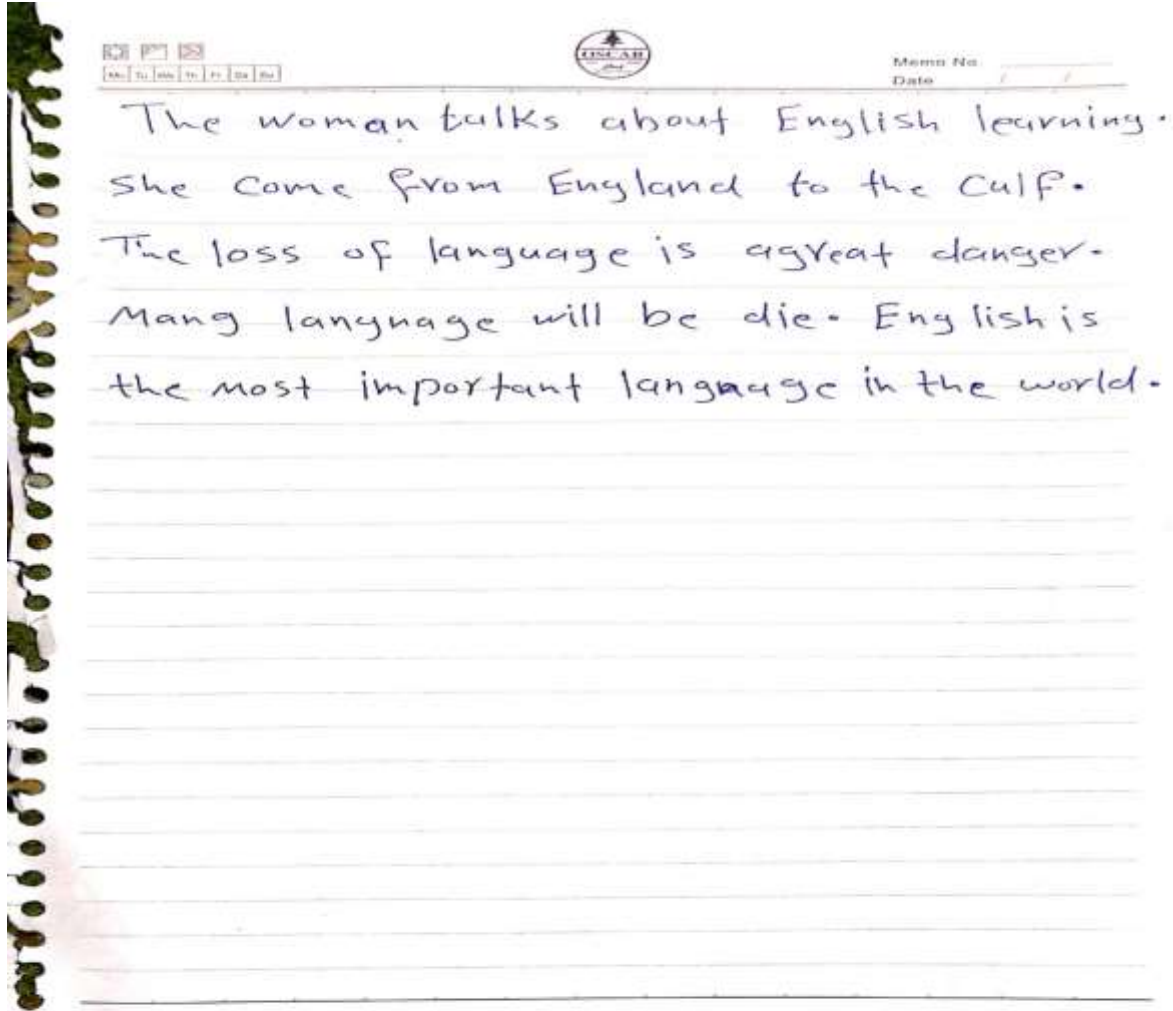 Mo Tu We Th Fr Sa Su
OSCAR
Memo No
Date / /
The woman talks about English learning.
She come from England to the Culf.
The loss of language is agreat danger.
Mang langnage will be die. English is
the most important langnage in the world.